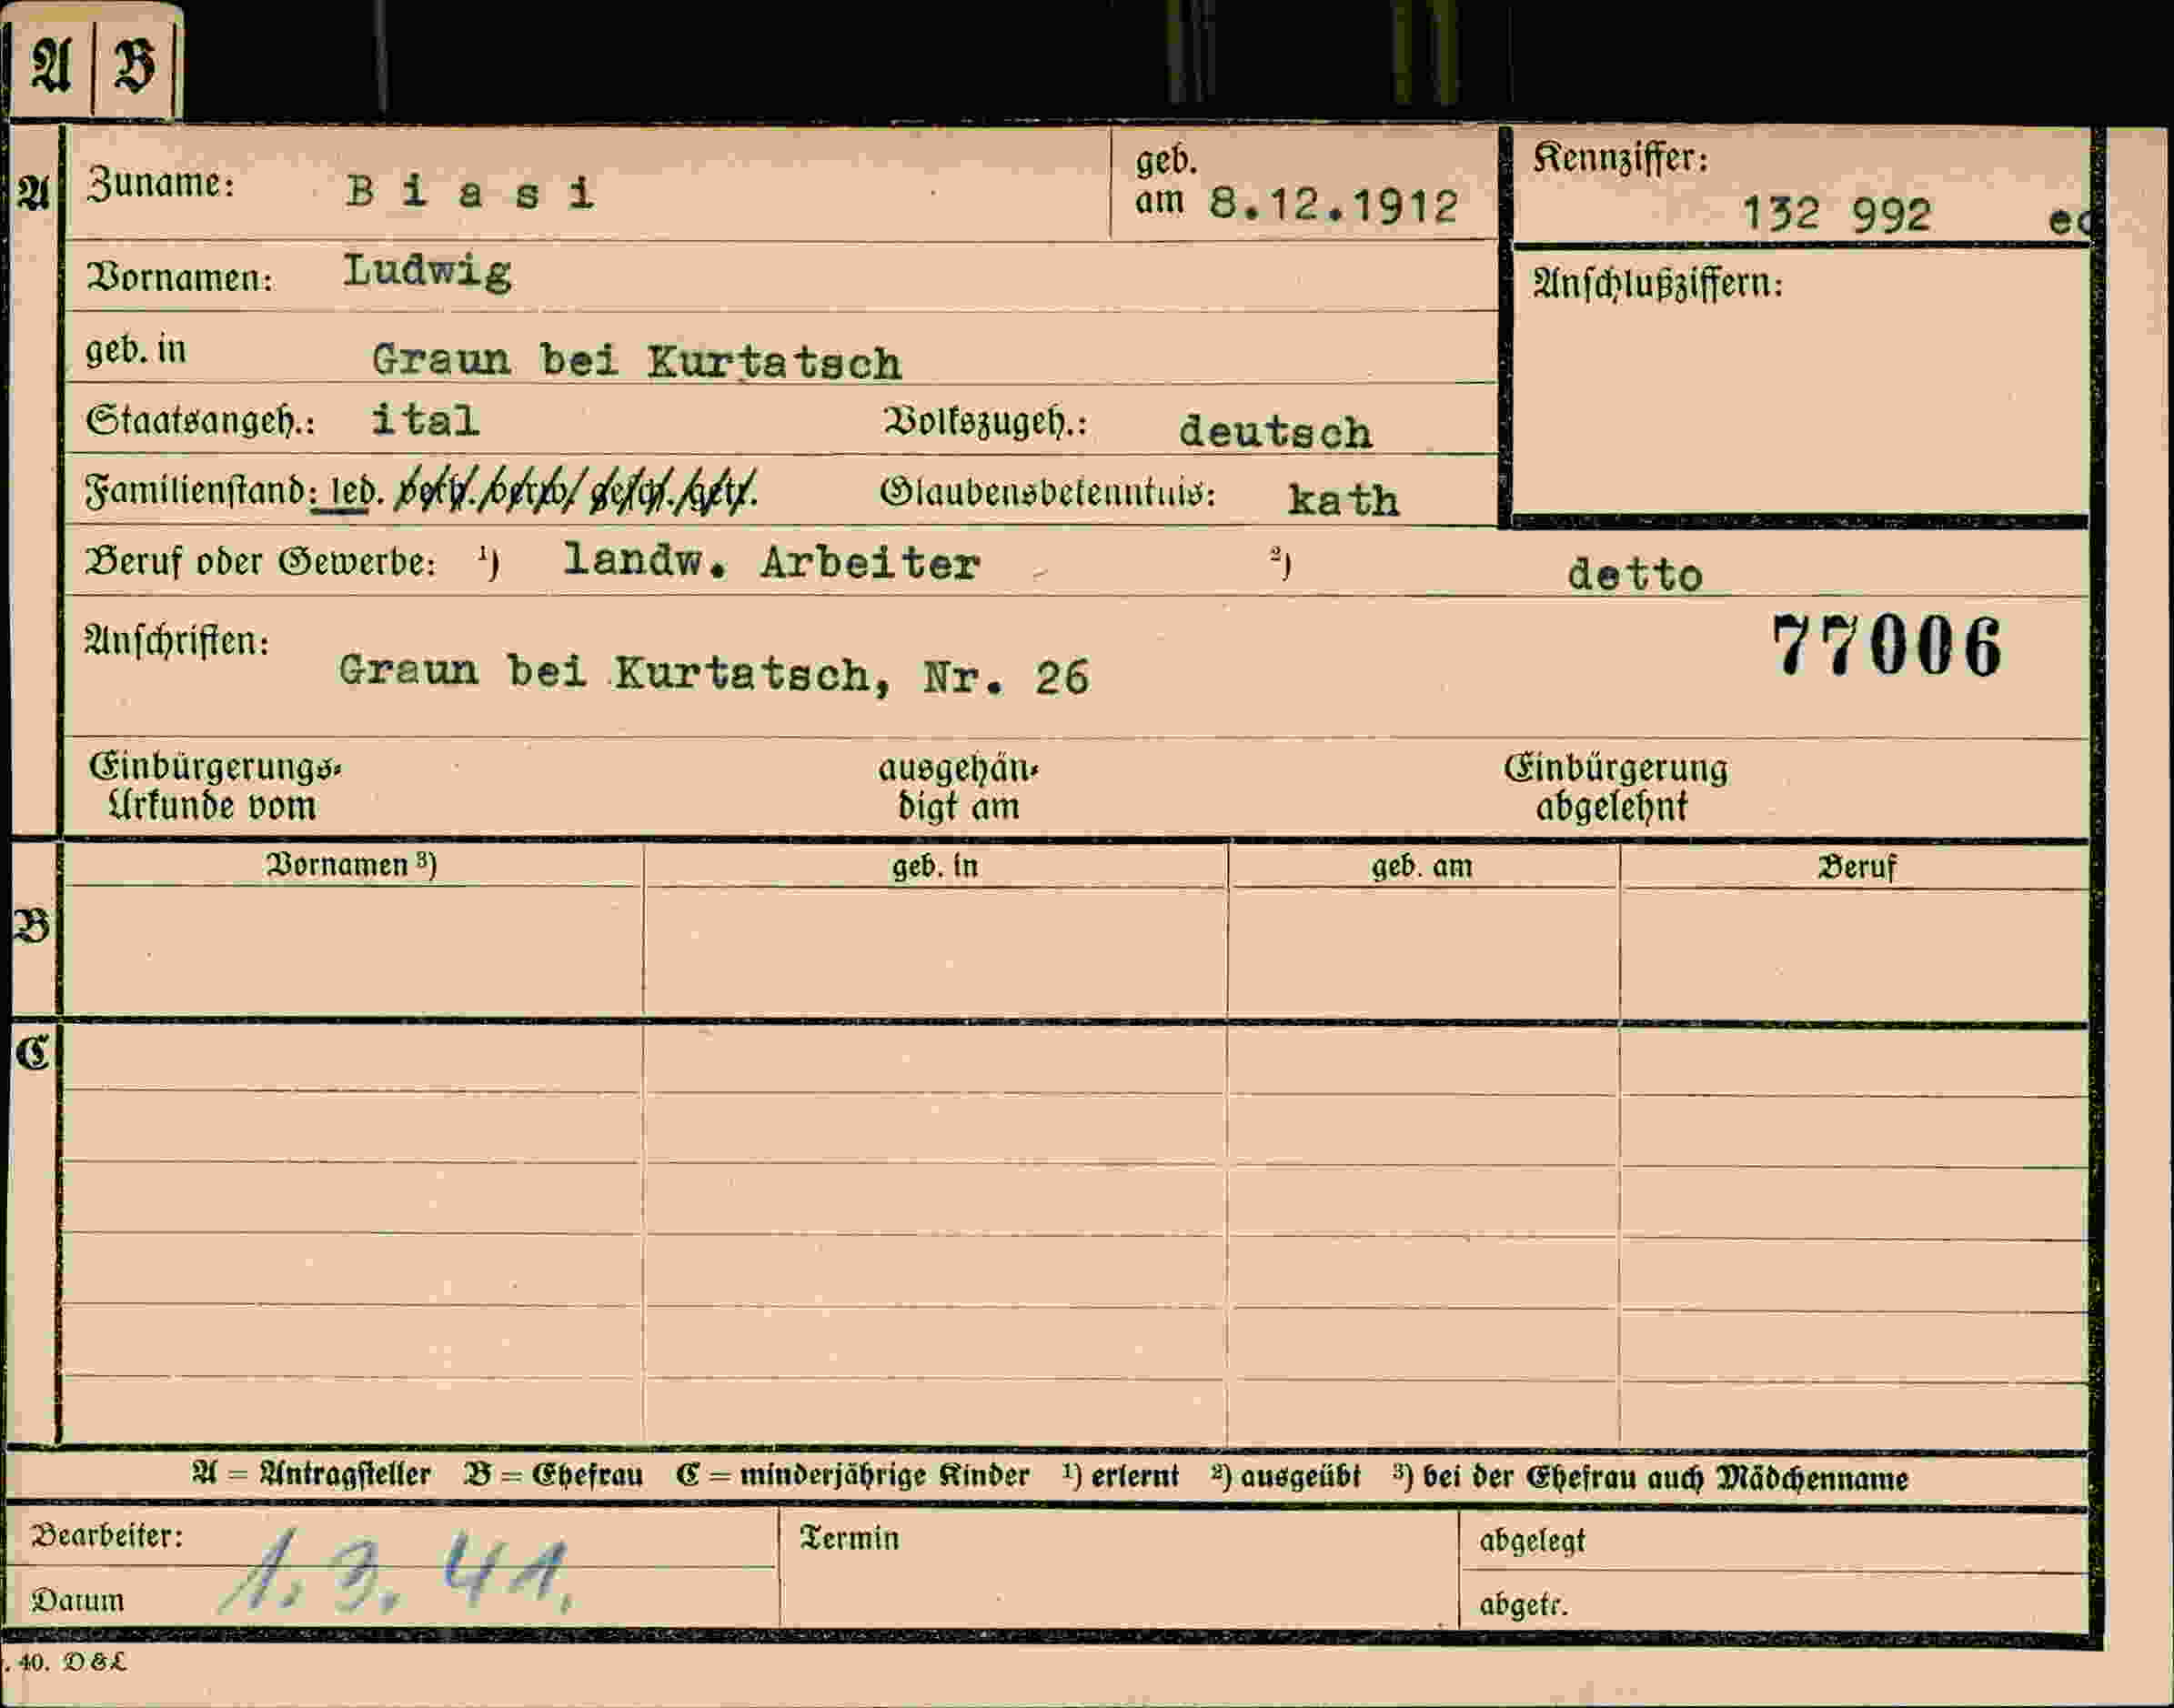 A B
A
Zuname: Biasi geb. am 8.12.1912
Kennziffer: 132 992
Vornamen: Ludwig
Anschlußziffern:
geb. in Graun bei Kurtatsch
Staatsangeh.: ital Volkszugeh.: deutsch
Familienstand: led. verh. verw. gesch. getr. Glaubensbekenntnis: kath
Beruf oder Gewerbe: ¹) landw. Arbeiter ²) detto
Anschriften: Graun bei Kurtatsch, Nr. 26
77006
Einbürgerungs-Urkunde vom ausgehändigt am Einbürgerung abgelehnt
Vornamen ³) geb. in geb. am Beruf
B
C
A = Antragsteller B = Ehefrau C = minderjährige Kinder ¹) erlernt ²) ausgeübt ³) bei der Ehefrau auch Mädchenname
Bearbeiter: Termin abgelegt
Datum 1.3.41. abgetr.
. 40. D & L